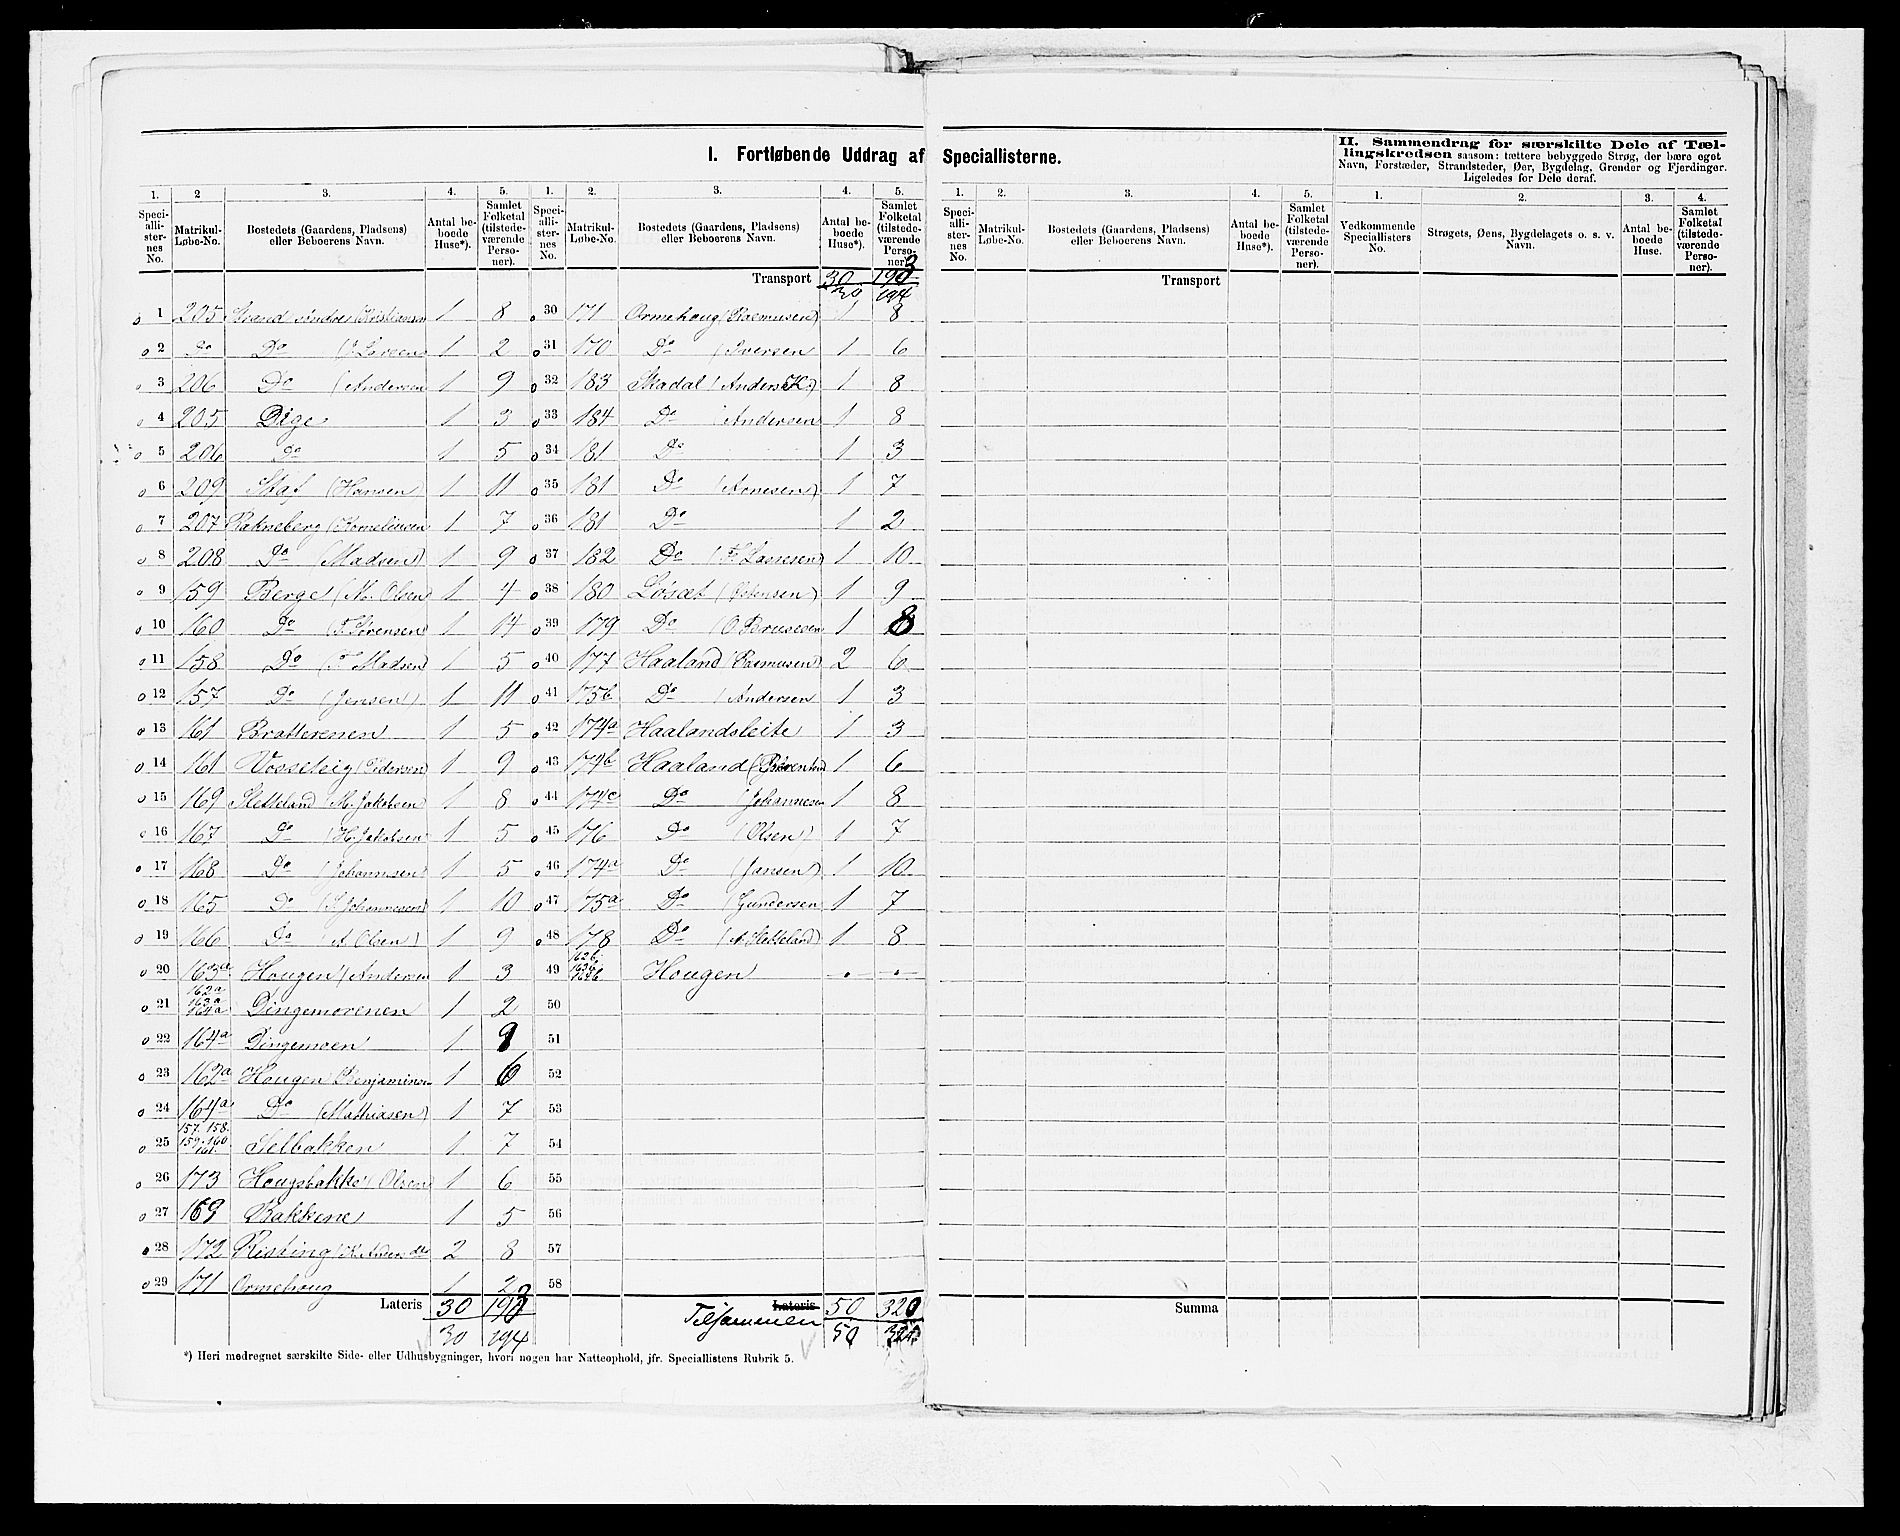 I. Fortløbende Uddrag af Speciallisterne.
II. Sammendrag for særskilte Dele af Tællingskredsen saasom: tættere bebyggede Strøg, der bære eget
Navn, Forstæder, Strandsteder, Øer, Bygdelag, Grender og Fjerdinger.
Ligeledes for Dele deraf.
1. 2 3. 4. 5. 1. 2. 3. 4. 5. 1. 2. 3. 4. 5. 1. 2. 3. 4.
Speciallisternes No. Matrikul-Løbe-No. Bostedets (Gaardens, Pladsens) eller Beboerens Navn. Antal beboede Huse*). Samlet Folketal (tilstedeværende Personer).
Speciallisternes No. Matrikul-Løbe-No. Bostedets (Gaardens, Pladsens) eller Beboerens Navn. Antal beboede Huse*). Samlet Folketal (tilstedeværende Personer).
Speciallisternes No. Matrikul-Løbe-No. Bostedets (Gaardens, Pladsens) eller Beboerens Navn. Antal beboede Huse*). Samlet Folketal (tilstedeværende Personer).
Vedkommende Speciallisters No. Strøgets, Øens, Bygdelagets o. s. v. Navn. Antal beboede Huse. Samlet Folketal (tilstedeværende Personer).
1 205 Strand søndre (Kristiansen 1 8
2 Do Do (Larsen 1 2
3 206 Do (Andersen 1 9
4 205 Dige 1 3
5 206 Do 1 5
6 209 Skaf (Hansen) 1 11
7 207 Rakneberg (Korneliusen 1 7
8 208 Do (Madsen) 1 9
9 159 Berge (M. Olsen) 1 4
10 160 Do (T. Sørensen) 1 14
11 158 Do (T Madsen) 1 5
12 157 Do (Jensen) 1 11
13 161 Bratterenen 1 5
14 161 (Pedersen) 1 9
15 169 Sletteland (M. Jakobsen 1 8
16 167 Do (H. Jakobsen 1 5
17 168 Do (Johannesen) 1 5
18 165 Do (Johannesen) 1 10
19 166 Do (A. Olsen) 1 9
20 163a Hougen (Andersen 1 3
21 162a 163a 164a Dingemorenen 1 2
22 164a Dingemoen 1
23 162a Hougen (Benjaminsen 1 6
24 164a Do (Mathiasen) 1 7
25 157. 158. 159. 160 161. Selbakken 1 7
26 173 Hougsbakke (Olsen) 1 6
27 169 Bakkene 1 5
28 172 Risting 2 8
29 171 Ormehoug 1 2
Lateris 30
30 194
Transport 30
30 194
30 171 Ormehoug (Rasmusen) 1 8
31 170 Do (Iversen 1 6
32 183 Skadal (Anders K.) 1 8
33 184 Do (Andersen 1 8
34 181 Do 1 3
35 181 Do (Arnesen) 1 7
36 181 Do 1 2
37 182 Do (Lassesen) 1 10
38 180 Løsæt (Østensen) 1 9
39 179 Do (O Brusesen 1 8
40 177 Haaland (Rasmusen) 2 6
41 175b Do (Andersen 1 3
42 174a Haalandsleite 1 3
43 174b Haaland 1 6
44 174c Do (Johannesen 1 8
45 176 Do (Olsen) 1 7
46 174a Do (Jansen) 1 10
47 175a Do (Gundersen 1 7
48 178 Do (A. Sletteland) 1 8
49 162b. 163b 164b Hougen - . - - . -
50
51
52
53
54
55
56
57
58
Lateris Tilsammen 50 320
50
Transport
Summa
*) Heri medregnet særskilte Side- eller Udhusbygninger, hvori nogen har Natteophold, jfr. Speciallistens Rubrik 5.